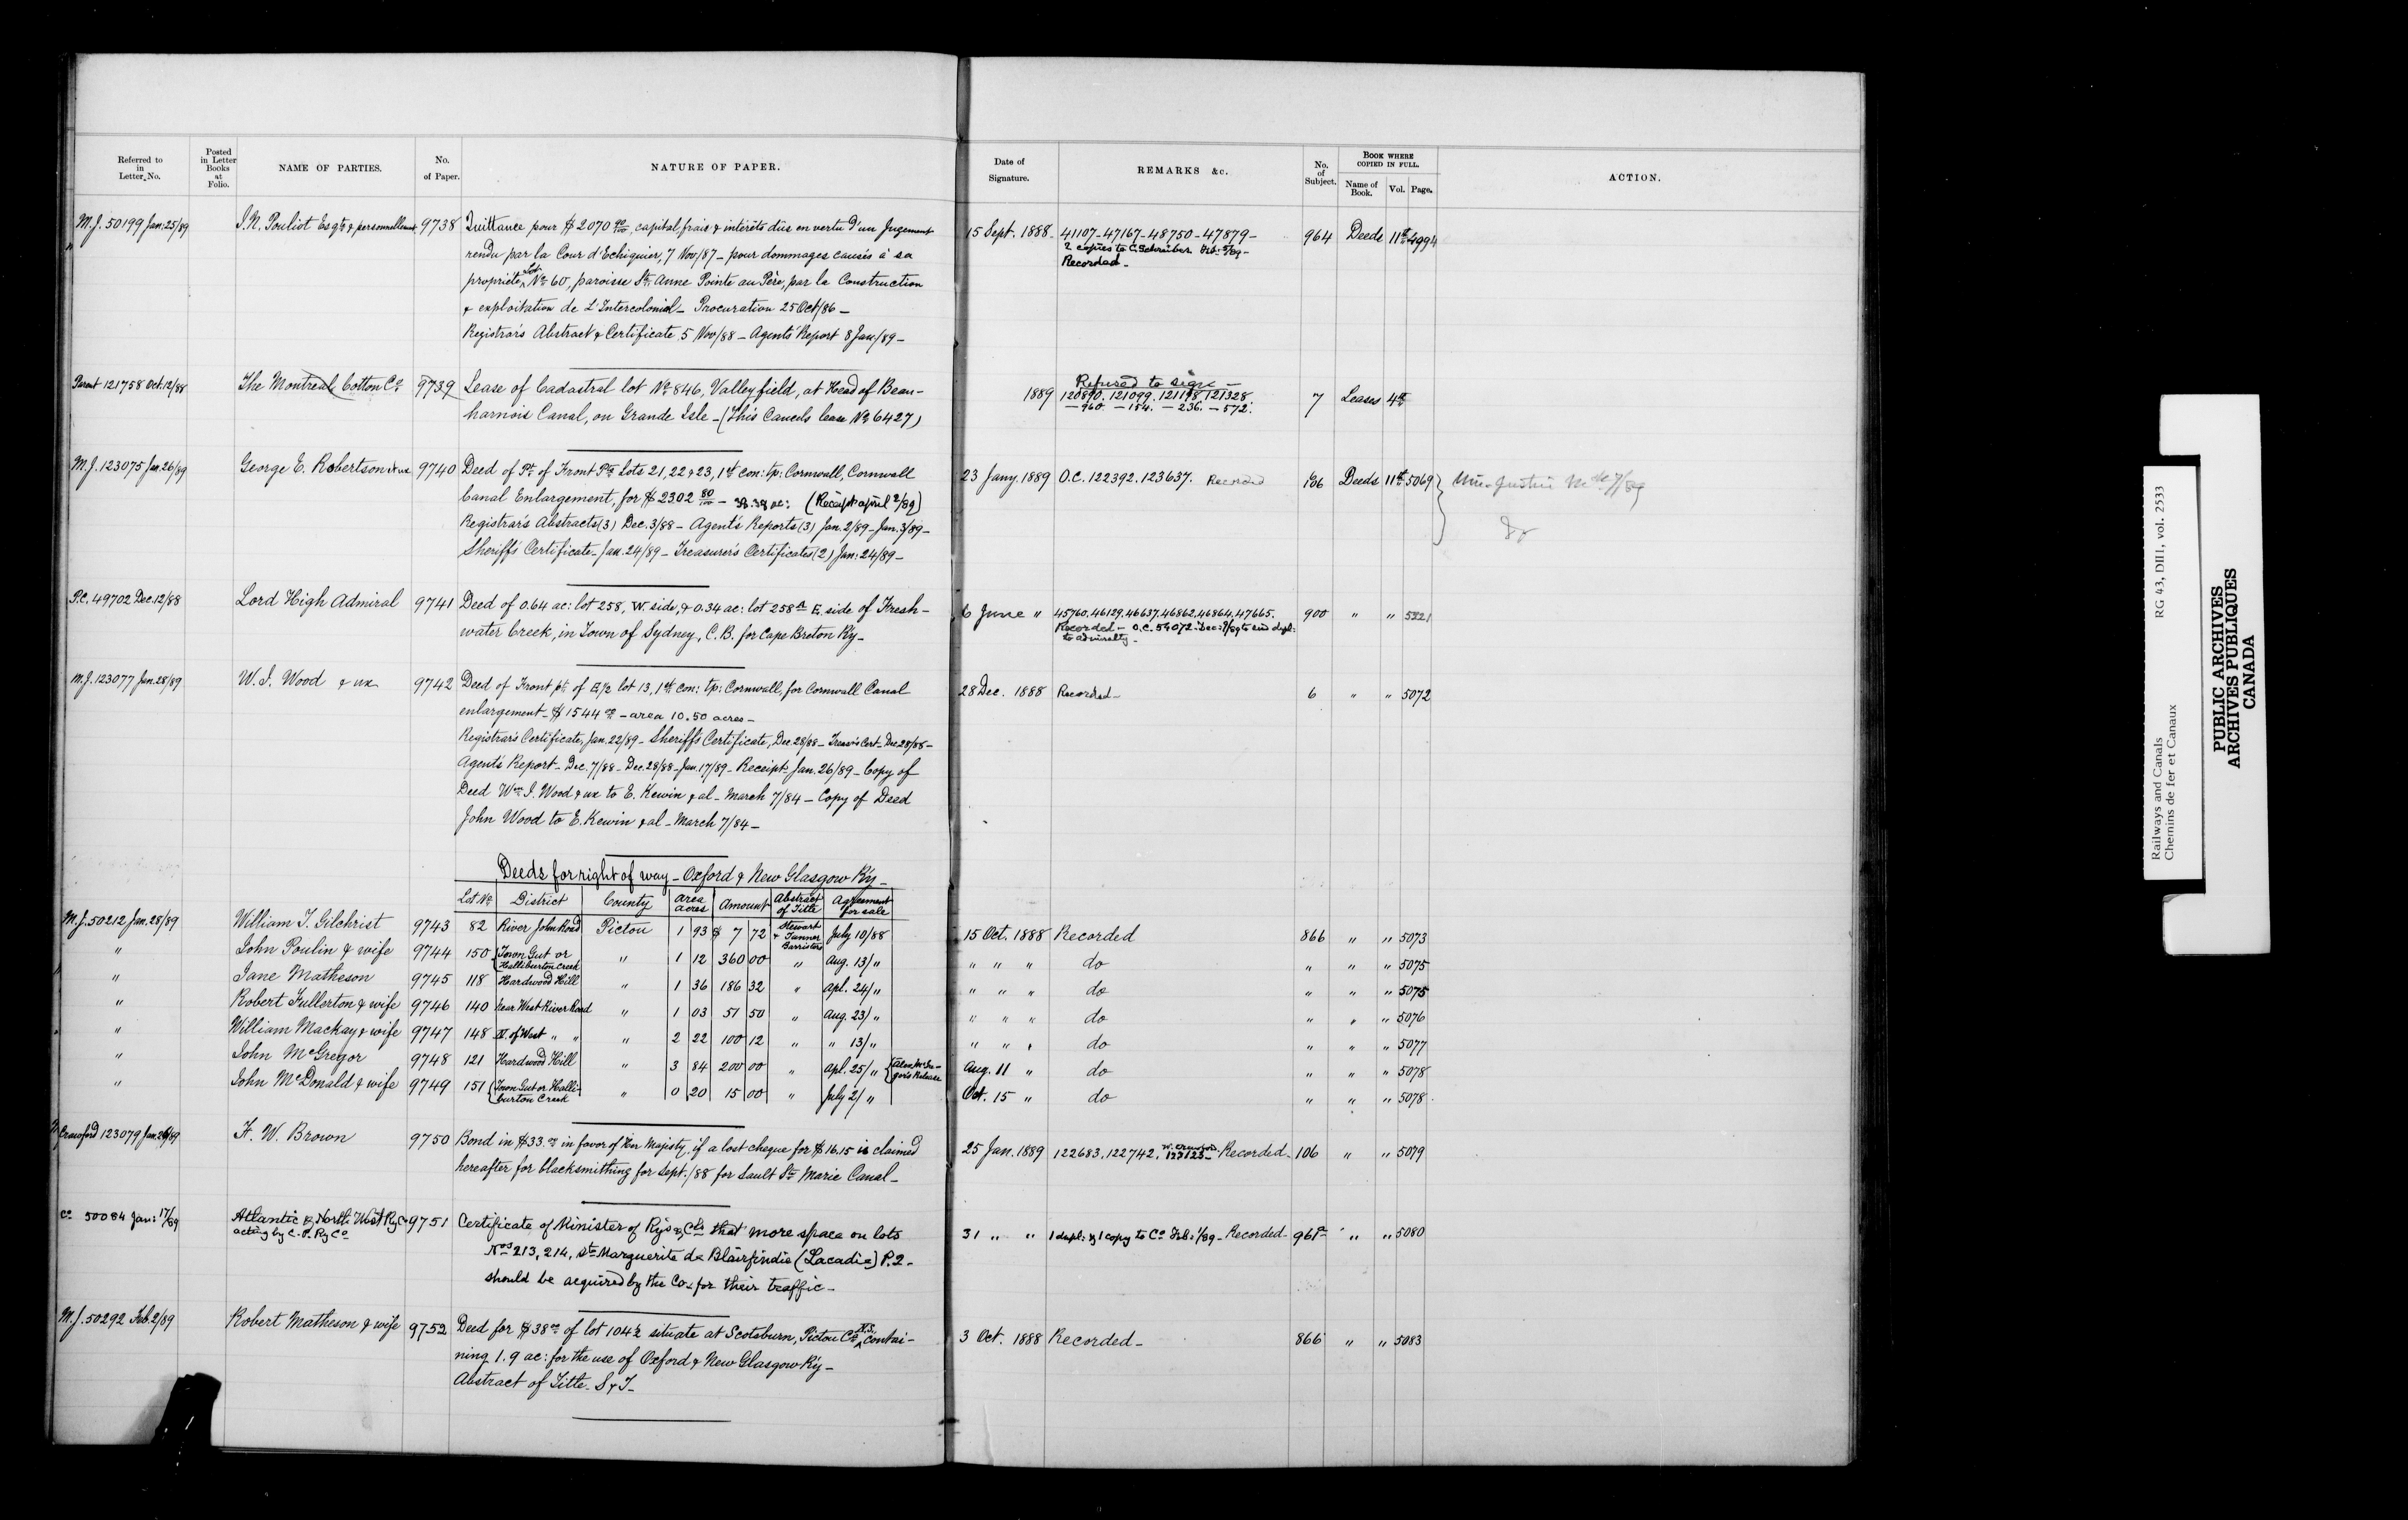 Referred to in Letter No.
Posted in Letter Books at Folio.
NAME OF PARTIES.
No. of Paper.
NATURE OF PAPER.
Date of Signature.
REMARKS &c.
No. of Subject.
BOOK WHERE COPIED IN FULL.
Name of Book.
Vol.
Page.
ACTION.
M.J. 50199 Jan: 25/89 J.N. Pouliot Esqte & personnellement 9738 Quittance pour $ 2070 00/100, capital, frais & intérêts dûs en vertu d'un Jugement 15 Sept. 1888 - 41107 - 47167 - 48750 - 47879 - 964 Deeds 11th 4994
rendu par la Cour d'Echiquier, 7 Nov/87 - pour dommages causés à sa 2 copies to C. Schreiber
propriété Lot No 60, paroisse Ste Anne Pointe au Père, par la Construction Recorded -
& exploitation de L'Intercolonial - Procuration 25 Oct/86 -
Registrar's Abstract & Certificate 5 Nov/88 - Agents Report 8 Jan/89 -
Parent 121758 Oct. 12/88 The Montreal Cotton Co 9739 Lease of Cadastral lot No 846, Valleyfield, at Head of Beau- 1889 Refused to sign - 7 Leases 4th
120890. 121099. 121198 121328
harnois Canal, on Grande Isle - (This Cancels lease No 6427) - 960. - 154. - 236. - 572.
M.J. 123075 Jan. 26/89 George E. Robertson & ux 9740 Deed of Pt. of Front Pts lots 21, 22 & 23, 1st con: tp: Cornwall, Cornwall 23 Jany. 1889 O.C. 122392. 123637. Recorded 136 Deeds 11th 5069
Canal Enlargement, for $ 2302 80/100 - 38.38 ac: (Receipt april 2/89)
Registrar's Abstracts (3) Dec. 3/88 - Agent's Reports (3) Jan. 2/89 - Jan. 3/89 -
Sheriff's Certificate - Jan. 24/89 - Treasurer's Certificates (2) Jan: 24/89 -
P.C. 49702 Dec. 12/88 Lord High Admiral 9741 Deed of 0.64 ac: lot 258, W. side, & 0.34 ac: lot 258A E. side of Fresh- 6 June " 45760. 46129. 46637. 46862. 46864. 47665. 900 " " 5221
water Creek, in Town of Sydney, C.B. for Cape Breton Ry - Recorded - O.C. 54072
to admiralty -
M.J. 123077 Jan. 28/89 W.J. Wood & ux 9742 Deed of Front pt. of E 1/2 lot 13, 1st con: tp: Cornwall, for Cornwall Canal 28 Dec. 1888 Recorded - 6 " " 5072
enlargement - $ 1544 00 - area 10.50 acres -
Registrar's Certificate, Jan. 22/89 - Sheriff's Certificate, Dec. 28/88 - Treas's Cert - Dec 28/88 -
Agent's Report - Dec. 7/88 - Dec. 28/88 - Jan. 17/89 - Receipts Jan. 26/89 - Copy of
Deed Wm J. Wood & ux to E. Kewin & al - March 7/84 - Copy of Deed
John Wood to E. Kewin & al - March 7/84 -
Deeds for right of way - Oxford & New Glasgow R'y -
Lot No District County Area acres Amount Abstract of Title Agreement for sale
M.J. 50212 Jan. 28/89 William T. Gilchrist 9743 82 River John Road Pictou 1 93 $ 7 72 Stewart & Tanner Barristers July 10/88 15 Oct. 1888 Recorded 866 " " 5073
" John Poulin & wife 9744 150 Town Gut or Halliburton Creek " 1 12 360 00 " Aug. 13/ " " " " do " " " 5075
" Jane Matheson 9745 118 Hardwood Hill " 1 36 186 32 " Apl. 24/ " " " " do " " " 5075
" Robert Fullerton & wife 9746 140 near West River Road " 1 03 51 50 " Aug. 23/ " " " " do " " " 5076
" William Mackay & wife 9747 148 N. of West " " " 2 22 100 12 " " 13/ " " " " do " " " 5077
" John McGregor 9748 121 Hardwood Hill " 3 84 200 00 " Apl. 25/ " Alex McGregor's Release Aug. 11 " do " " " 5078
" John McDonald & wife 9749 151 Town Gut or Halliburton Creek " 0 20 15 00 " July 2/ " Oct. 15 " do " " " 5078
Crawford 123079 Jan. 26/89 F. W. Brown 9750 Bond in $33. 00 in favor of Her Majesty, if a lost cheque for $ 16.15 is claimed 25 Jan. 1889 122683. 122742. 123123 - Recorded - 106 " " 5079
hereafter for blacksmithing for Sept. /88 for Sault Ste Marie Canal -
Co 50084 Jan: 17/89 Atlantic & North West Ry Co 9751 Certificate of Minister of Rys & Cls that more space on lots 31 " " 1 dupl: & 1 copy to Co Feb: 1/89 - Recorded - " " 5080
acting by C.P. Ry Co
Nos 213, 214, Ste Marguerite de Blairfindie (Lacadie) P.Q. -
should be acquired by the Co - for their traffic -
M.J. 50292 Feb. 2/89 Robert Matheson & wife 9752 Deed for $38 00 of lot 104 1/2 situate at Scotsburn, Pictou Co N.S. contai- 3 Oct. 1888 Recorded - 866 " " 5083
ning 1.9 ac: for the use of Oxford & New Glasgow R'y -
Abstract of Title. S & T -
Railways and Canals
Chemins de fer et Canaux
RG 43, DIII, vol. 2533
PUBLIC ARCHIVES
ARCHIVES PUBLIQUES
CANADA